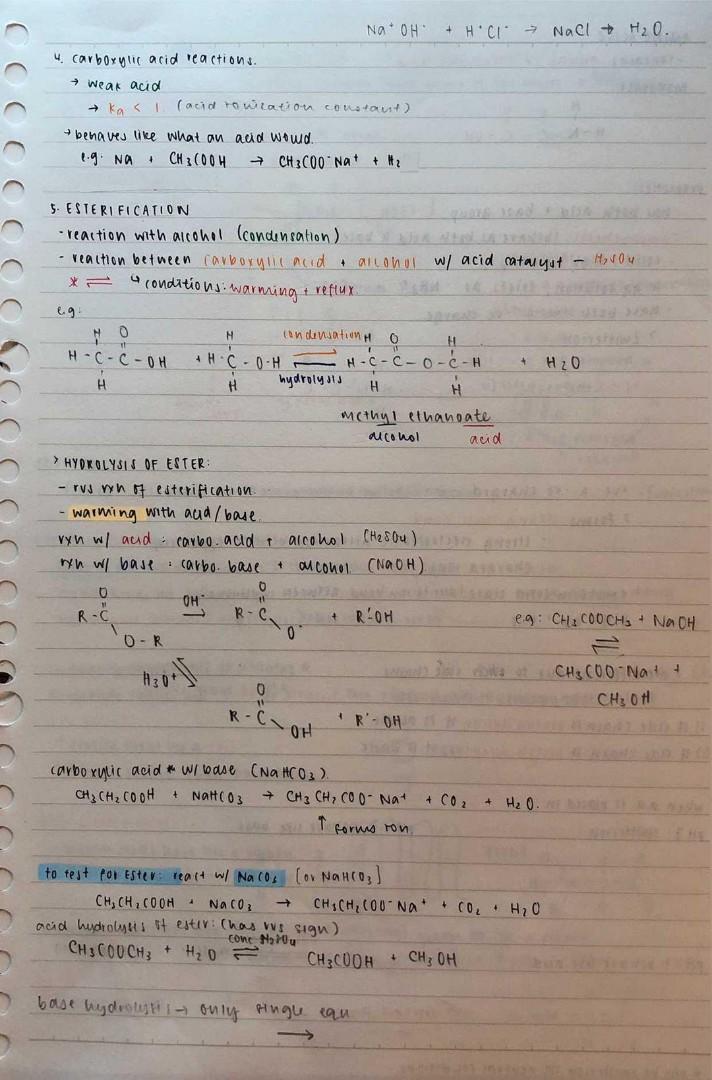 Na⁺OH⁻ + H⁺Cl⁻ → NaCl + H₂O.
4. carboxylic acid reactions.
→ weak acid
→ Ka < 1. (acid ionisation constant)
→ behaves like what an acid would.
e.g: Na + CH₃COOH → CH₃COO⁻Na⁺ + H₂
5. ESTERIFICATION
- reaction with alcohol (condensation)
- reaction between carboxylic acid + alcohol w/ acid catalyst – H₂SO₄
* ⇌ ↳ conditions: warming + reflux.
e.g:
H O H condensation H O H
H - C - C - OH + H - C - O - H ⇌ H - C - C - O - C - H + H₂O
H H hydrolysis H H
methyl ethanoate
alcohol acid
> HYDROLYSIS OF ESTER:
- rvs rxn of esterification.
- warming with acid/base.
rxn w/ acid : carbo. acid + alcohol (H₂SO₄)
rxn w/ base : carbo. base + alcohol. (NaOH)
O O
R - C OH⁻ → R - C + R'-OH e.g: CH₃COOCH₃ + NaOH
O - R O⁻ ⇌
H₃O⁺ ⇌ CH₃COO⁻Na⁺ +
O CH₃OH
R - C + R'-OH
OH
carboxylic acid w/ base (NaHCO₃)
CH₃CH₂COOH + NaHCO₃ → CH₃CH₂COO⁻Na⁺ + CO₂ + H₂O.
↑ forms ion.
to test for Ester: react w/ NaCO₃ [or NaHCO₃]
CH₃CH₂COOH + NaCO₃ → CH₃CH₂COO⁻Na⁺ + CO₂ + H₂O
acid hydrolysis of ester: (has rvs sign)
conc H₂SO₄
CH₃COOCH₃ + H₂O ⇌ CH₃COOH + CH₃OH
base hydrolysis → only single eqn
→